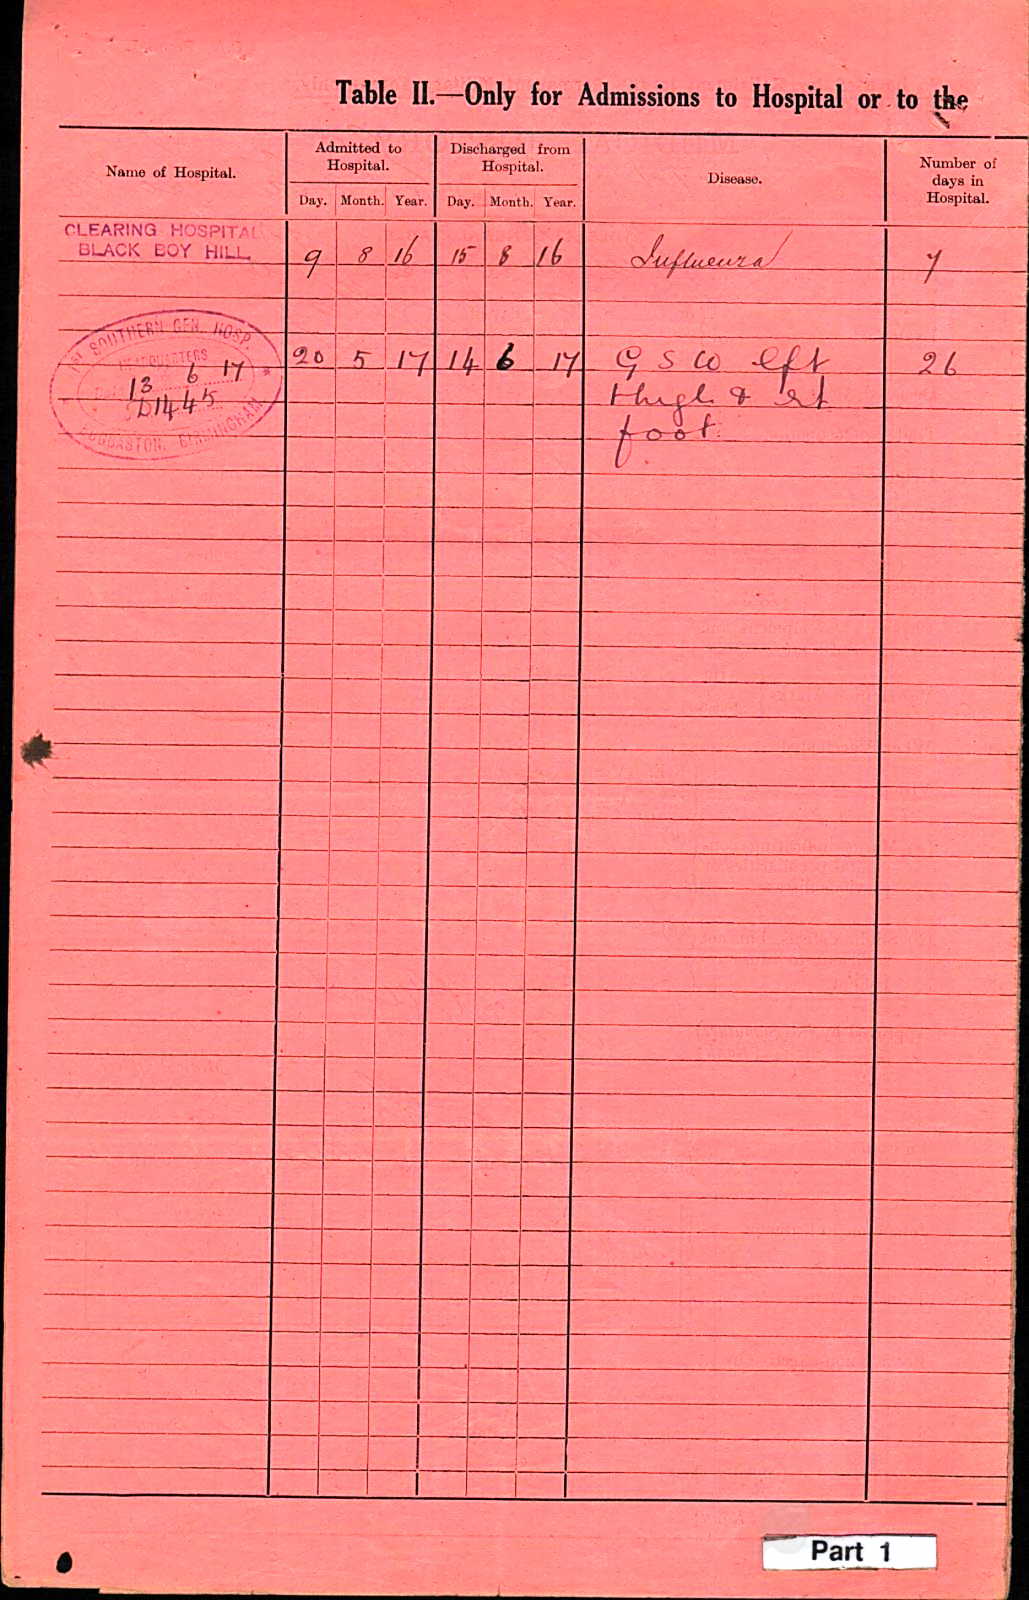 Table II.—Only for Admissions to Hospital or to the
Name of Hospital.
Admitted to
Hospital.
Day. Month. Year.
Discharged from
Hospital.
Day. Month. Year.
Disease.
Number of
days in
Hospital.
CLEARING HOSPITAL
BLACK BOY HILL
9 8 16 15 8 16 Influenza 7
1ST SOUTHERN GEN. HOSP.
HEADQUARTERS
13 6 17
D1445
EDGBASTON, BIRMINGHAM
20 5 17 14 6 17 G S W lft 26
thigh & rt
foot
Part 1